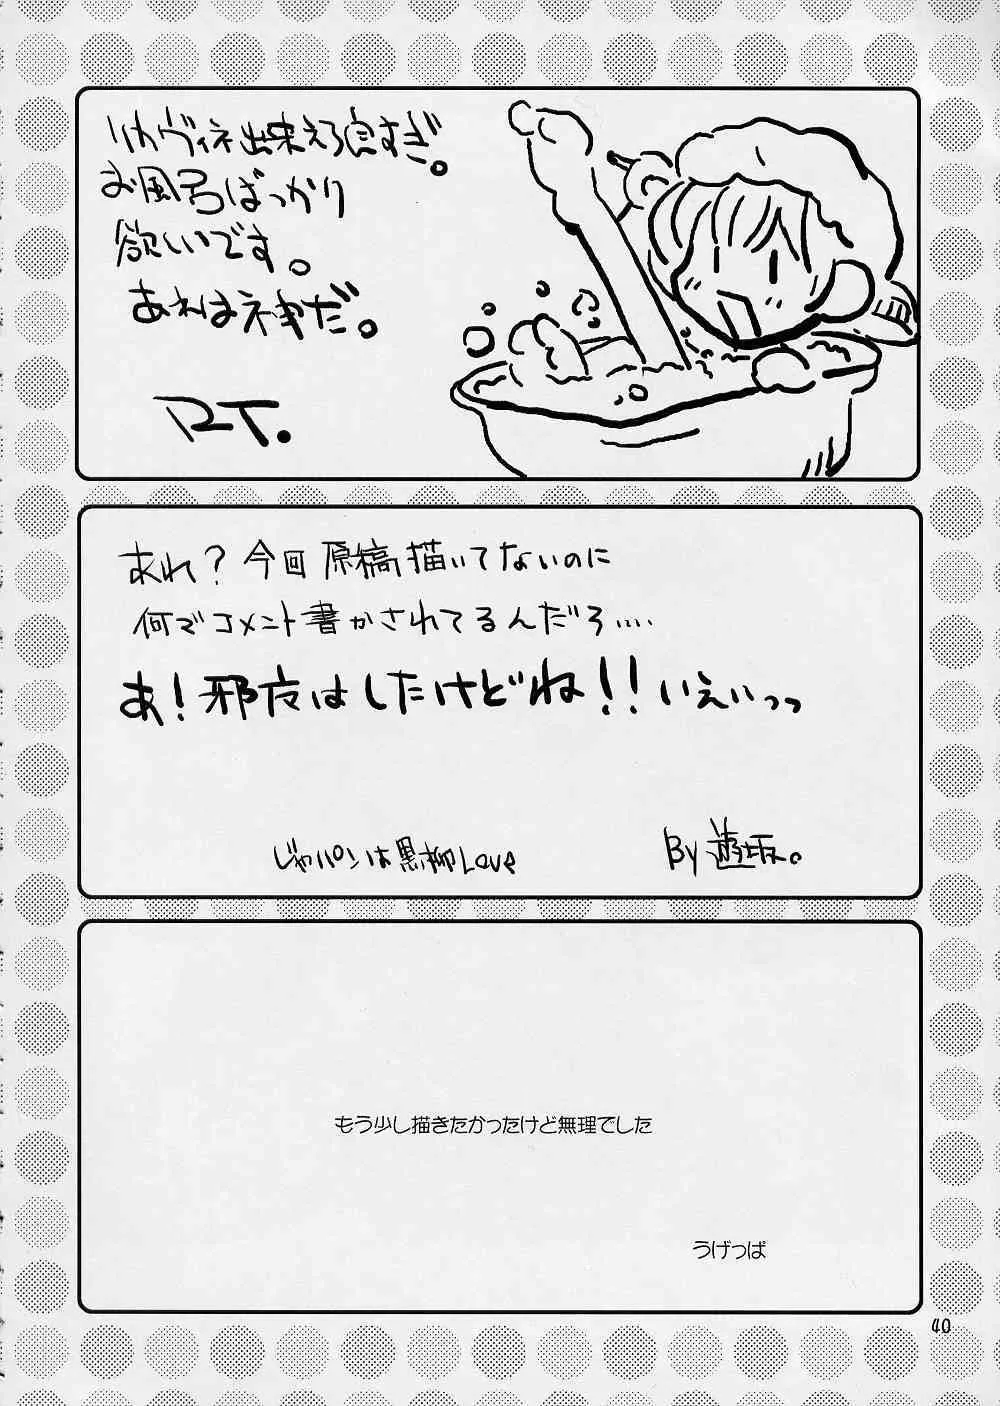 リカヴィネ出来えろ良すぎ。
お風呂ばっかり
欲しいです。
あれは神だ。
あれ?今回原稿描いてないのに
何でコメント書かされてるんだろ....
あ!邪広はしたけどね!!いえぃっっ
じゃパンは黒柳Love
By 遊坂。
もう少し描きたかったけど無理でした
うげっぱ
40